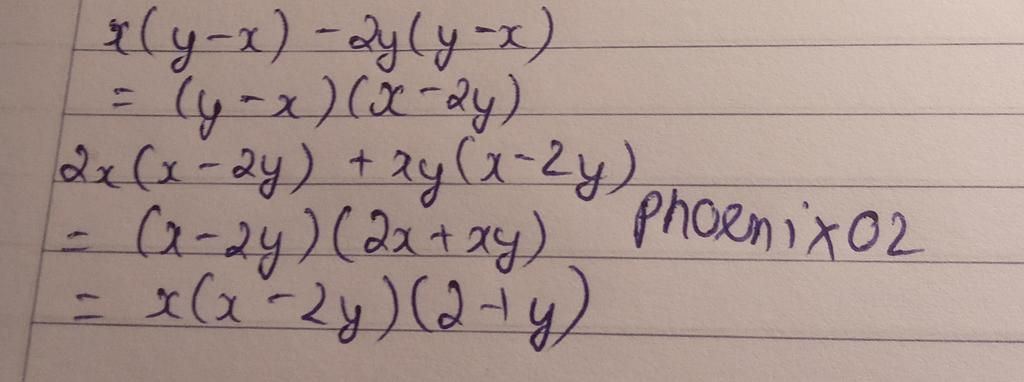 x(y-x) - 2y(y-x)
= (y-x)(x-2y)
2x(x-2y) + xy(x-2y)
= (x-2y)(2x+xy)
Phoenix02
= x(x-2y)(2+y)